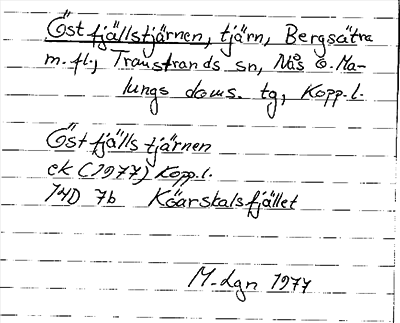 Östfjällstjärnen, tjärn, Bergsätra
m.fl., Transtrands sn, Nås o. Ma-
lungs doms. tg, Kopp.l.
Östfjällstjärnen
ek (1977) Kopp.l.
14D 7b Köarskalsfjället
M-lgn 1977